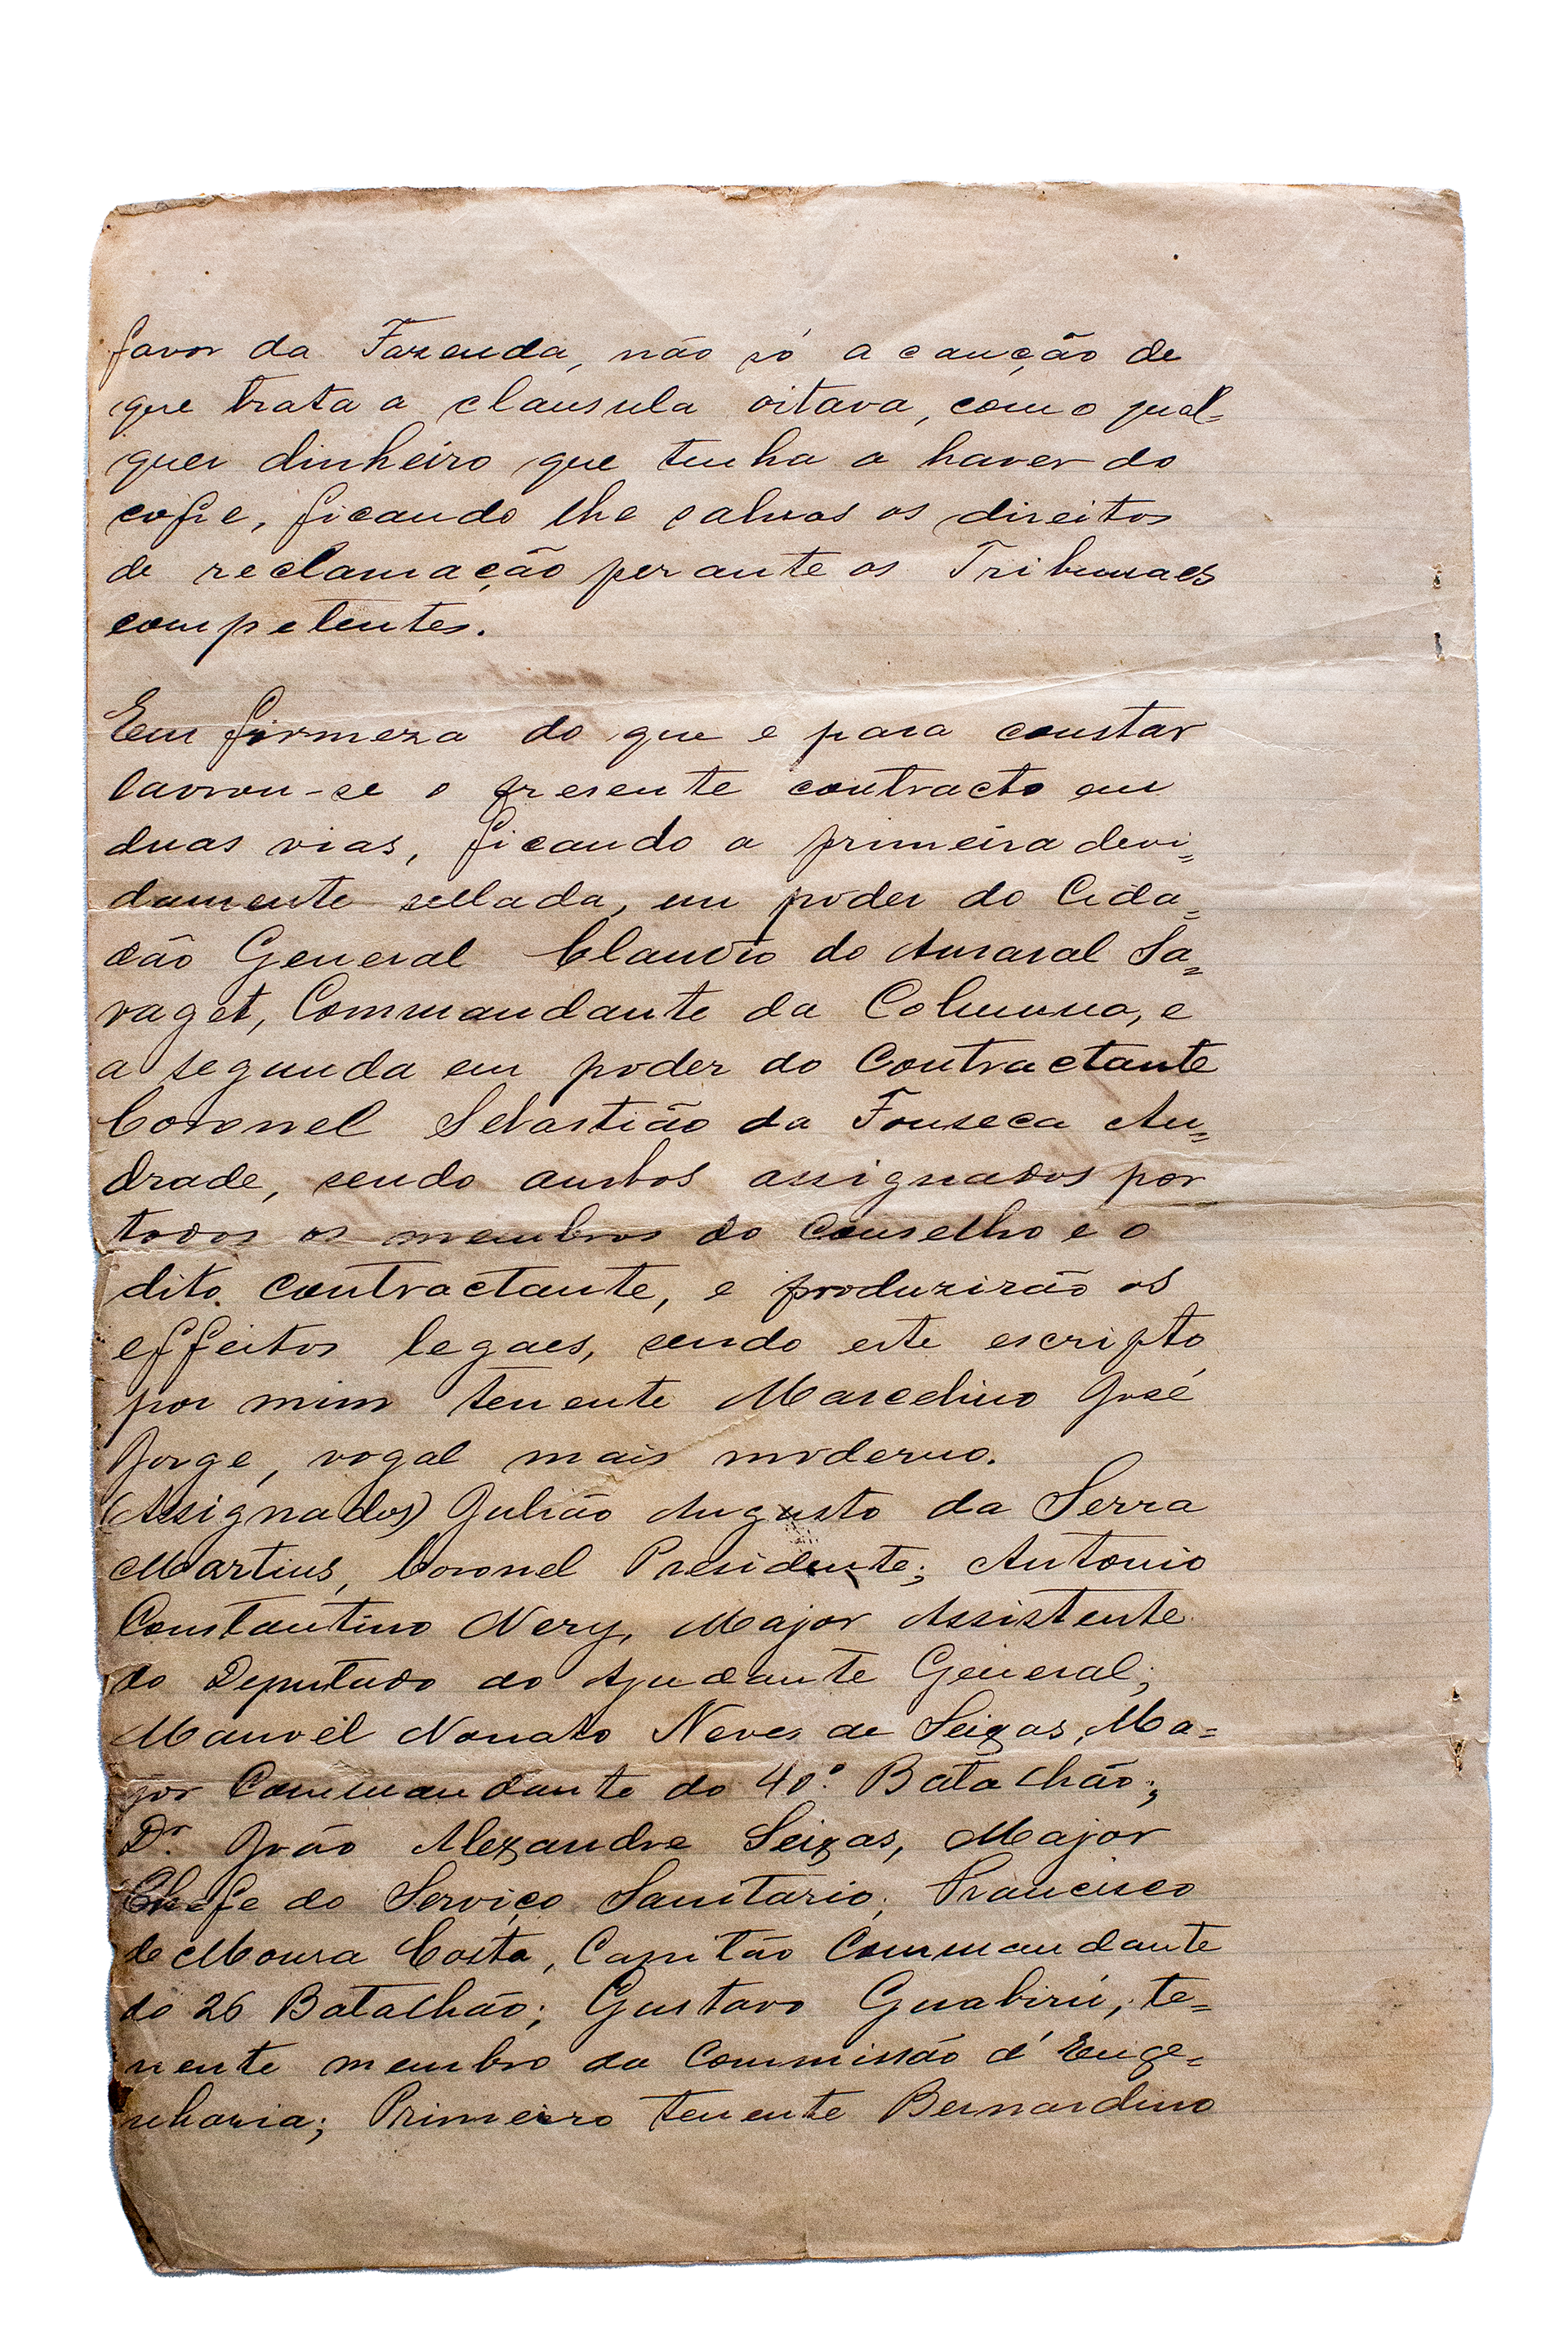 favor da Fazenda, não só a caução de
que trata a clausula oitava, como qual=
quer dinheiro que tenha a haver do
cofre, ficando lhe salvos os direitos
de reclamação perante os Tribunaes
competentes.
Em firmeza do que e para constar
lavrou-se o presente contracto em
duas vias, ficando a primeira devi=
damente sellada, em poder do Cida=
dão General Claudio do Amaral Sa=
vaget, Commandante da Columna, e
a segunda em poder do Contractante
Coronel Sebastião da Fonseca An=
drade, sendo ambos assignados por
todos os membros do Conselho e o
dito contractante, e produzirão os
effeitos legaes, sendo este escripto
por mim tenente Marcelino José
Jorge, vogal mais moderno.
(Assignados) Julião Augusto da Serra
Martins, Coronel Presidente; Antonio
Constantino Nery, Major Assistente
do Deputado do Ajudante General;
Manoel Nonato Neves de Seixas, Ma=
jor Commandante do 40º Batalhão;
Dr. João Alexandre Seixas, Major
Chefe do Serviço Sanitario; Francisco
de Moura Costa, Capitão Commandante
do 26 Batalhão; Gustavo Guabirú, te=
nente membro da Commissão d'Enge=
nharia; Primeiro tenente Bernardino